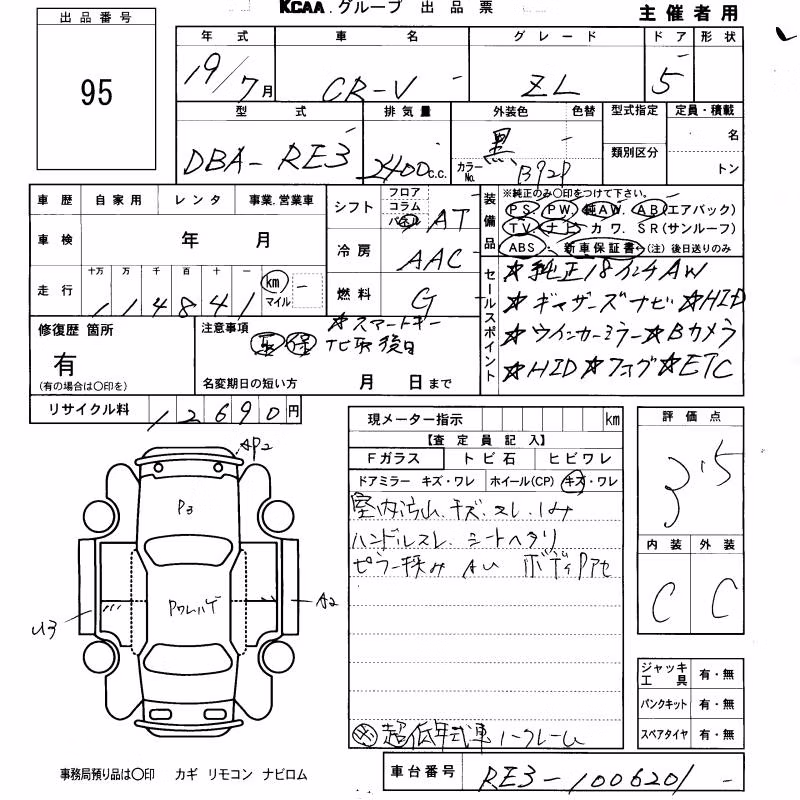 KCAA.グループ 出品票
主催者用
出品番号
95
年式 車名 グレード ドア 形状
19/7月 CR-V ZL 5
型式 排気量 外装色 色替 型式指定 定員・積載
DBA-RE3 2400c.c. 黒 カラーNo. B92P 類別区分 名
トン
車歴 自家用 レンタ 事業.営業車
車検 年 月
走行 十万 万 千 百 十 一
114841 km マイル
シフト フロア コラム パネル AT
冷房 AAC
燃料 G
装備品 ※純正のみ〇印をつけて下さい。
PS. PW. 純AW. AB(エアバック)
TV. ナビ カワ. SR(サンルーフ)
ABS 新車保証書 ←(注) 後日送りのみ
セールスポイント
☆純正18インチAW
☆ギャザーズナビ☆HID
☆ウインカーミラー☆Bカメラ
☆HID☆フォグ☆ETC
修復歴 箇所
有
(有の場合は〇印を)
注意事項
☆スマートキー
取 保 ナビ取後日
名変期日の短い方 月 日まで
リサイクル料 12690円
現メーター指示 km
【査定員記入】
Fガラス トビ石 ヒビワレ
ドアミラー キズ・ワレ ホイール(CP) キズ・ワレ
室内汚れ.キズ.スレ.シミ
ハンドルスレ.シートヘタリ
ピラー歪み AU ボディPアセ
超低年式車
評価点
3.5
内装 外装
C C
ジャッキ工具 有・無
パンクキット 有・無
スペアタイヤ 有・無
AP2
P3
Pウレハゲ
U3
A2
事務局預り品は〇印 カギ リモコン ナビロム
車台番号 RE3-1006201